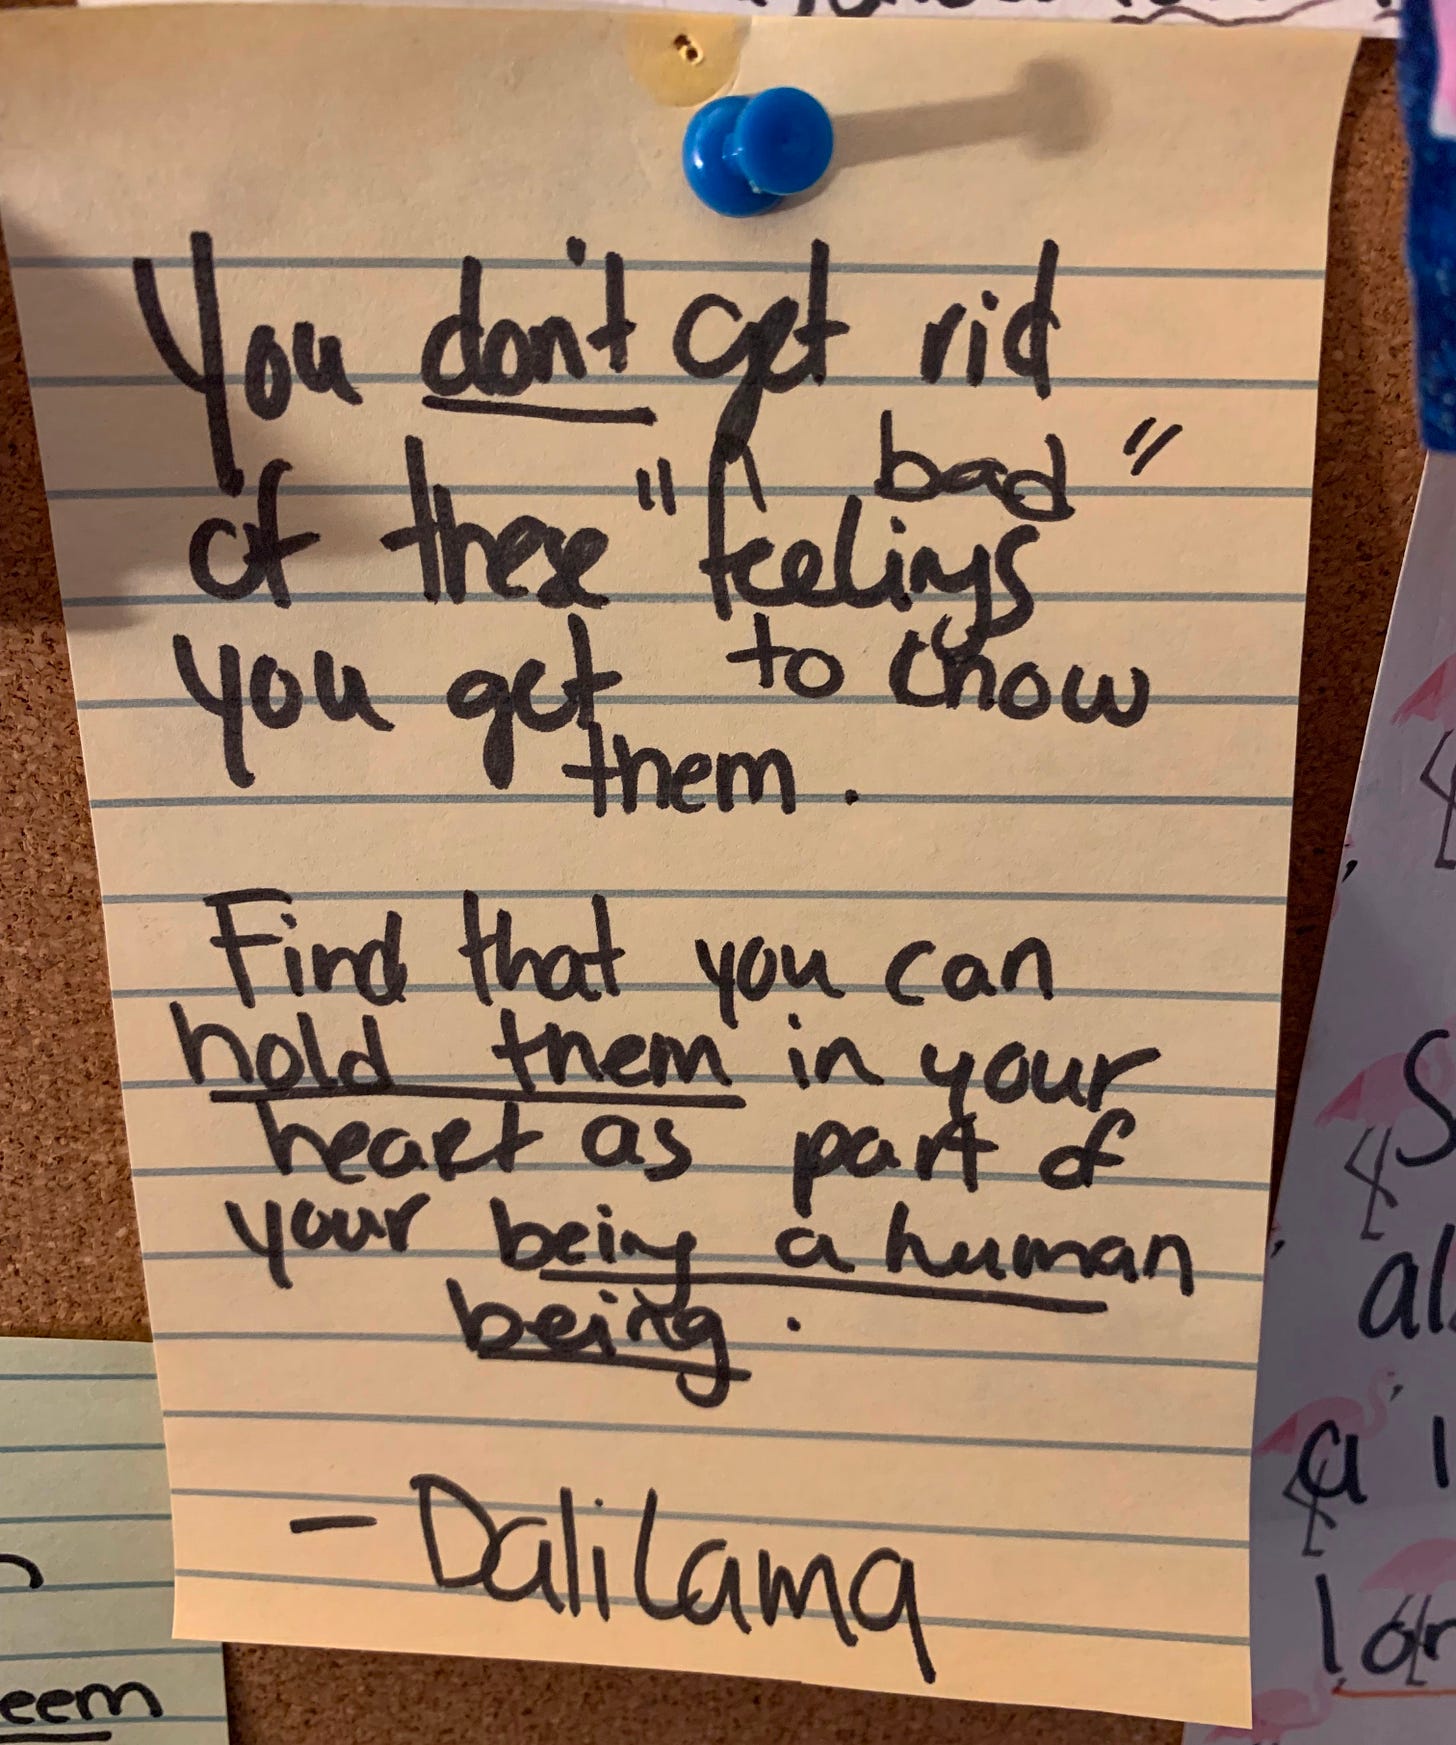 You don't get rid
of these "bad feelings"
you get to know
them.
Find that you can
hold them in your
heart as part of
your being a human
being.
- Dali Lama
eem
S
al
a
lor